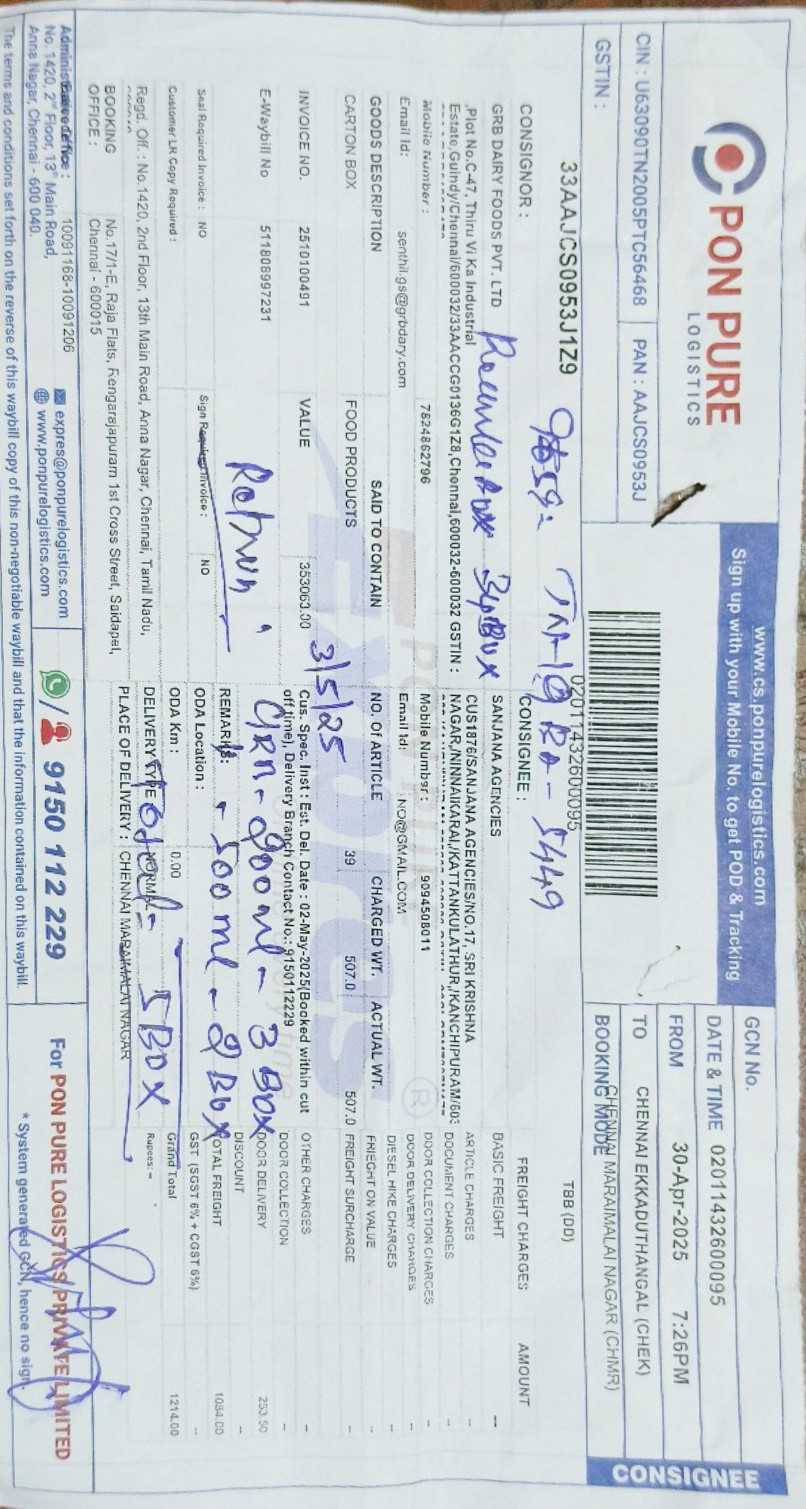 PON PURE
LOGISTICS
www.cs.ponpurelogistics.com
Sign up with your Mobile No. to get POD & Tracking
CIN : U63090TN2005PTC56468
PAN : AAJCS0953J
GSTIN :
33AAJCS0953J1Z9
02011432600095
GCN No.
DATE & TIME 02011432600095
FROM 30-Apr-2025 7:26PM
TO CHENNAI EKKADUTHANGAL (CHEK)
CHENNAI MARAIMALAI NAGAR (CHMR)
BOOKING MODE
TBB (DD)
CONSIGNEE
TN-19 BA - 5449
CONSIGNOR :
GRB DAIRY FOODS PVT. LTD
,Plot No.C-47, Thiru Vi Ka Industrial
Estate,Guindy/Chennai/600032/33AACCG0136G1Z8,Chennai,600032-600032 GSTIN :
34 BOX
Mobile Number : 7824862796
Email Id: senthil.gs@grbdary.com
CONSIGNEE :
SANJANA AGENCIES
CUS1876/SANJANA AGENCIES/NO.17, SRI KRISHNA
NAGAR,/NINNAIKARAI,/KATTANKULATHUR,/KANCHIPURAM/603
Mobile Number : 9094508011
Email Id: NO@GMAIL.COM
GOODS DESCRIPTION SAID TO CONTAIN NO. Of ARTICLE CHARGED WT. ACTUAL WT.
CARTON BOX FOOD PRODUCTS 39 507.0 507.0
3/5/25
INVOICE NO. 2510100491 VALUE 353063.00
Cus. Spec. Inst : Est. Del. Date : 02-May-2025(Booked within cut
off time), Delivery Branch Contact No.: 9150112229
E-Waybill No 511808997231
Return
GRN - 200ml - 3 BOX
REMARKS:
- 500 ml - 2 Box
Seal Required Invoice : NO
Sign Required Invoice : NO
ODA Location :
Customer LR Copy Required :
ODA Km : 0.00
DELIVERY TYPE : NORMAL
Total - 5 BOX
PLACE OF DELIVERY : CHENNAI MARAIMALAI NAGAR
FREIGHT CHARGES AMOUNT
BASIC FREIGHT --
ARTICLE CHARGES --
DOCUMENT CHARGES --
DOOR COLLECTION CHARGES --
DOOR DELIVERY CHARGES --
DIESEL HIKE CHARGES --
FRIEGHT ON VALUE --
FREIGHT SURCHARGE --
OTHER CHARGES --
DOOR COLLECTION --
DOOR DELIVERY 253.50
DISCOUNT --
TOTAL FREIGHT 1084.00
GST (SGST 6% + CGST 6%) --
Grand Total 1214.00
Rupees: -
Regd. Off. : No.1420, 2nd Floor, 13th Main Road, Anna Nagar, Chennai, Tamil Nadu,
BOOKING OFFICE : No.17/1-E, Raja Flats, Rengarajapuram 1st Cross Street, Saidapet,
Chennai - 600015
10091168-10091206
Administrative Office :
No. 1420, 2nd Floor, 13th Main Road,
Anna Nagar, Chennai - 600 040.
expres@ponpurelogistics.com
www.ponpurelogistics.com
9150 112 229
For PON PURE LOGISTICS PRIVATE LIMITED
* System generated GCN, hence no sign.
The terms and conditions set forth on the reverse of this waybill copy of this non-negotiable waybill and that the information contained on this waybill.